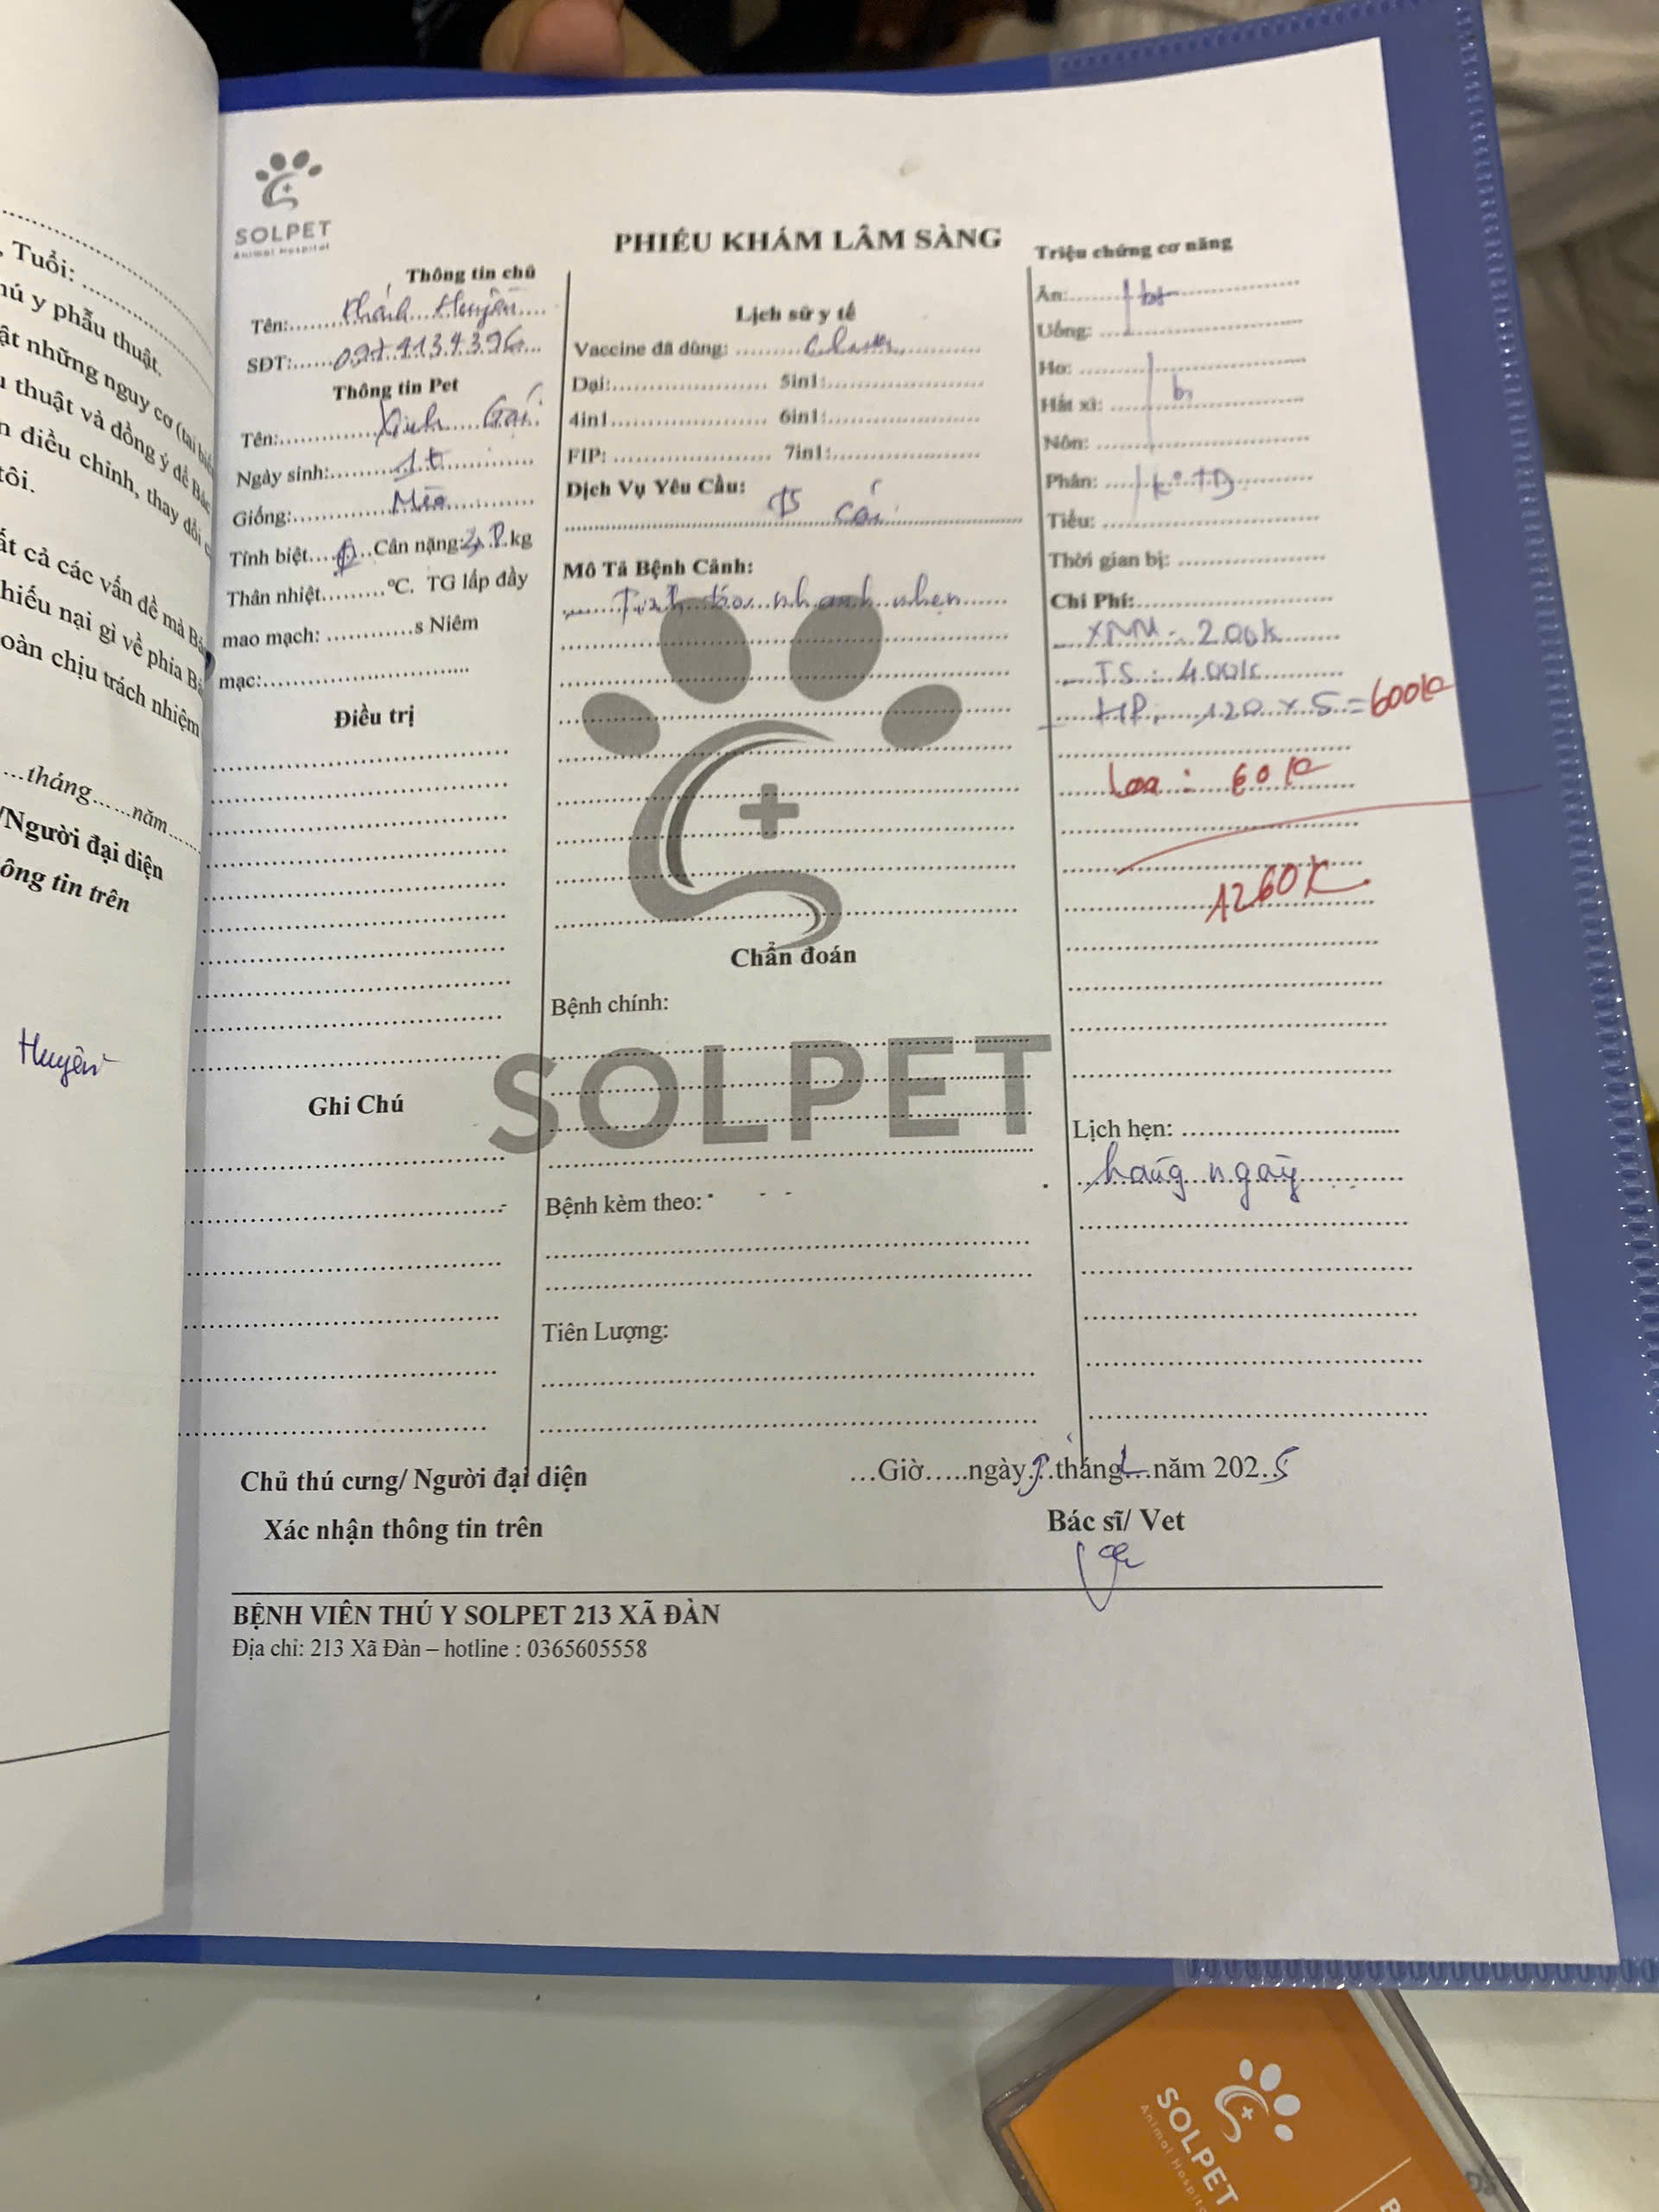 , Tuổi:
thú y phẫu thuật.
ật những nguy cơ (tai biến
thuật và đồng ý để Bác
n điều chỉnh, thay đổi
tôi.
ất cả các vấn đề mà Bá
hiếu nại gì về phía B
oàn chịu trách nhiệm
...tháng......năm......
/Người đại diện
ông tin trên
Huyền
SOLPET
Animal Hospital
PHIẾU KHÁM LÂM SÀNG
Thông tin chủ
Tên: Khánh Huyền
SĐT: 0974134396
Thông tin Pet
Tên: Xinh Gái
Ngày sinh: 1t
Giống: Mèo
Tính biệt Cân nặng: kg
Thân nhiệt.........ºC. TG lấp đầy
mao mạch: ............s Niêm
mạc:
Điều trị
Ghi Chú
Lịch sử y tế
Vaccine đã dùng: chưa
Dại: 5in1:
4in1 6in1:
FIP: 7in1:
Dịch Vụ Yêu Cầu:
TS cái
Mô Tả Bệnh Cảnh:
Tỉnh táo nhanh nhẹn
SOLPET
Chẩn đoán
Bệnh chính:
Bệnh kèm theo:
Tiên Lượng:
Triệu chứng cơ năng
Ăn: bt
Uống:
Ho:
Hắt xì:
Nôn:
Phân: k° TD
Tiểu:
Thời gian bị:
Chi Phí:
- XNM: 200k
- TS: 400k
- HP: 120 x 5 = 600k
Loa: 60k
1260k
Lịch hẹn:
hàng ngày
Chủ thú cưng/ Người đại diện
Xác nhận thông tin trên
...Giờ.....ngày tháng năm 2025
Bác sĩ/ Vet
BỆNH VIÊN THÚ Y SOLPET 213 XÃ ĐÀN
Địa chỉ: 213 Xã Đàn – hotline : 0365605558
SOLPET
Animal Hospital